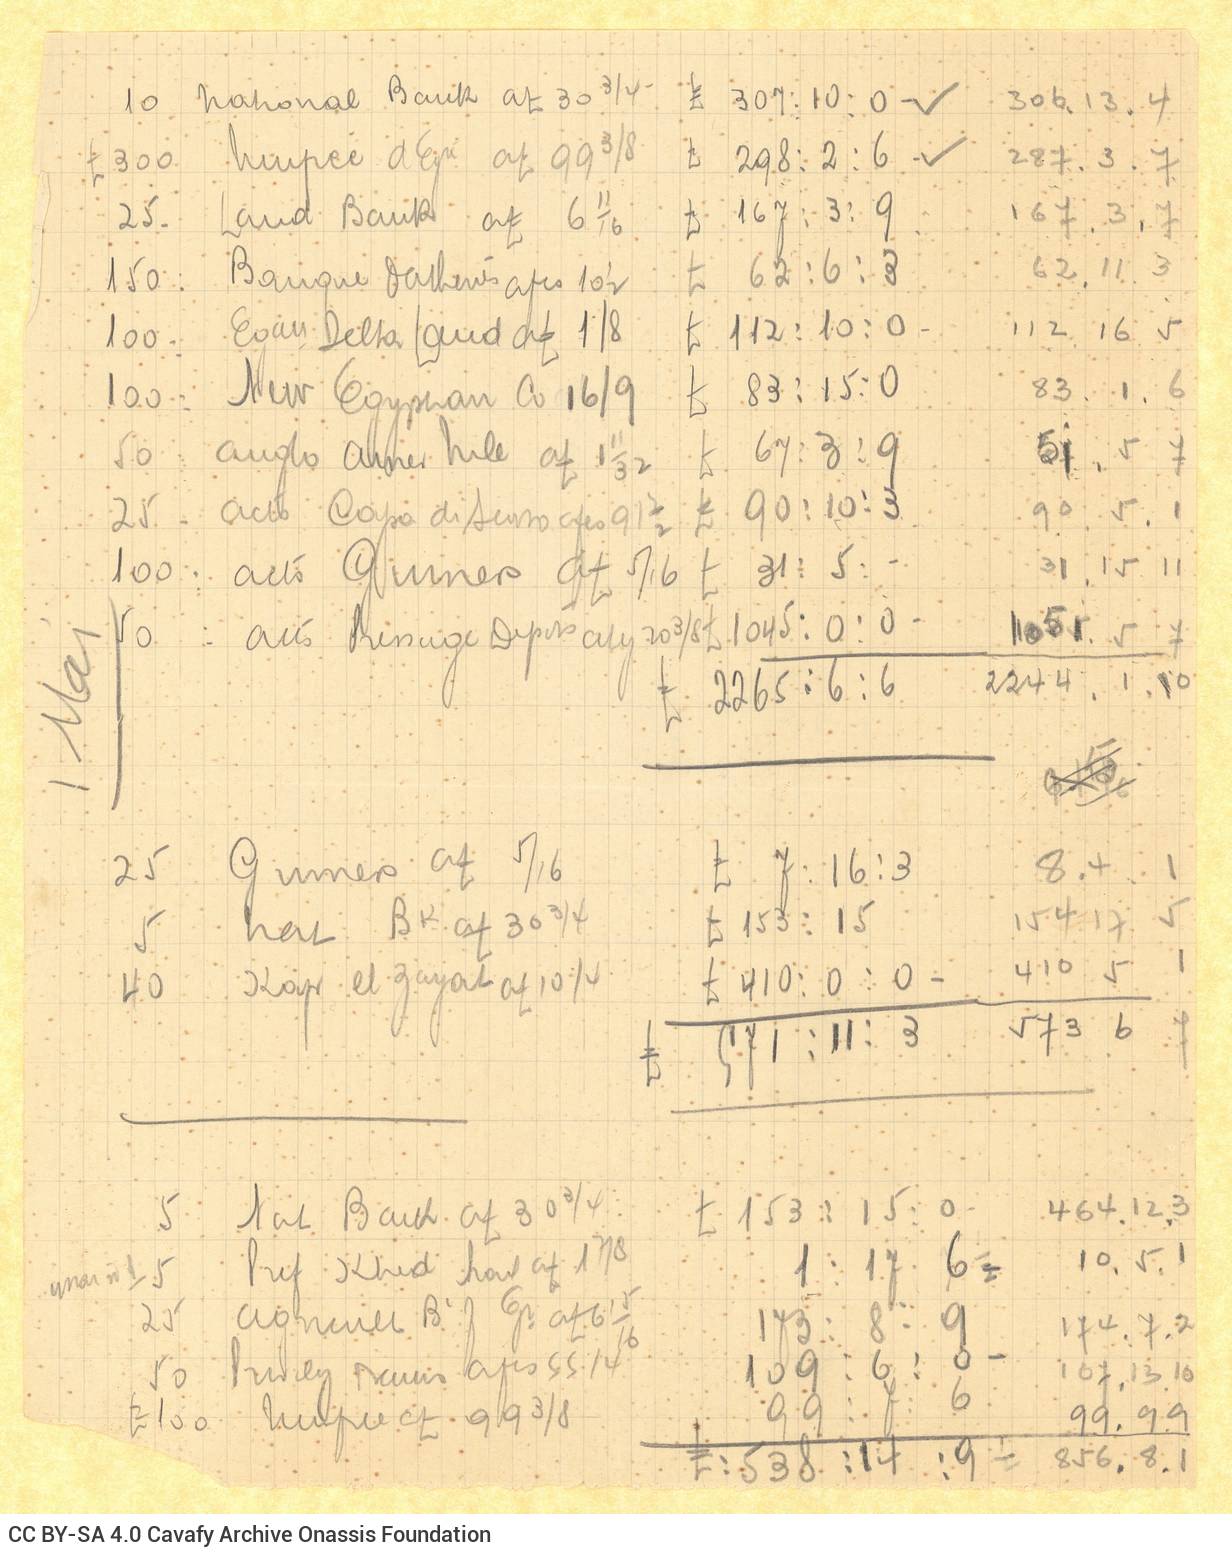 10 National Bank at 30 3/4 £ 307:10:0 - ✓ 306.13.4
£300 Unifiée d'Egt at 99 3/8 £ 298:2:6 - ✓ 287.3.7
25- Land Bank at 6 11/16 £ 167:3:9 167.3.7
150: Banque d'Athenes at frs 10 1/2 £ 62:6:3 62.11.3
100- Egan Delta Land at 1 1/8 £ 112:10:0- 112 16 5
100: New Egyptian Co 16/9 £ 83:15:0 83.1.6
50 anglo Amer Nile at 1 11/32 £ 67:3:9 51.5 7
25- acts at frs 91 1/2 £ 90:10:3 90.5.1
100: acts at 5/16 £ 31:5:- 31.15 11
50: acts Depots at 20 3/8 £ 1045:0:0- 1051.5 7
£ 2265:6:6 2244.1.10
1 May
25 at 5/16 £ 7:16:3 8.4.1
5 Nat Bk at 30 3/4 £ 153:15 154 17 5
40 Kafr el Zayat at 10 1/4 £ 410:0:0- 410 5 1
£ 571:11:3 573 6 7
5 Nat Bank at 30 3/4 £ 153:15:0- 464.12.3
5 Pref Khed at 1 7/8 1:17 6= 10.5.1
25 Bk of Eg. at 6 15/16 173:8:9 174.7.2
50 at frs 55 1/4 109:6:0- 107.13.10
£100 Unifiée at 99 3/8 99:7:6 99.9 9
£:538:17:9= 856.8.1
CC BY-SA 4.0 Cavafy Archive Onassis Foundation